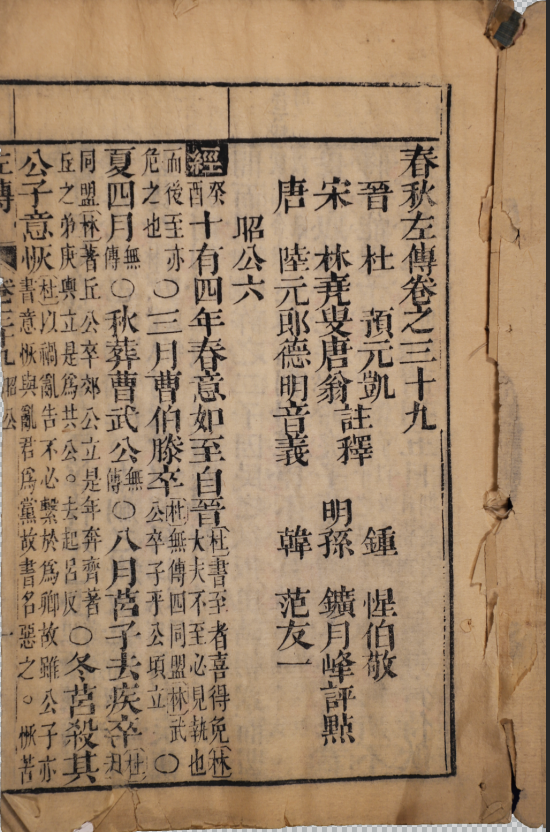 春秋左傳卷之三十九
晉 杜 預元凱 鍾 惺伯敬
宋 林堯叟唐翁 註釋 明孫 鑛月峰評點
唐 陸元郎德明音義 韓 范友一
昭公六
經 癸酉 十有四年春意如至自晉 杜 書至者喜得免 林
大夫不至必見執也
而後至亦
危之也 ○三月曹伯滕卒 杜 無傳四同盟 林 武
公卒子平公頃立 ○
夏四月 無傳 ○秋葬曹武公 無傳 ○八月莒子去疾卒 杜
同盟 林 著丘公卒郊公立是年奔齊著
丘之弟庚輿立是爲共公。去起呂反 ○冬莒殺其
公子意恢 杜 以禍亂告不必繫於爲卿故雖公子亦
書意恢與亂君爲黨故書名惡之。恢苦
左傳 卷三十九 昭公 一